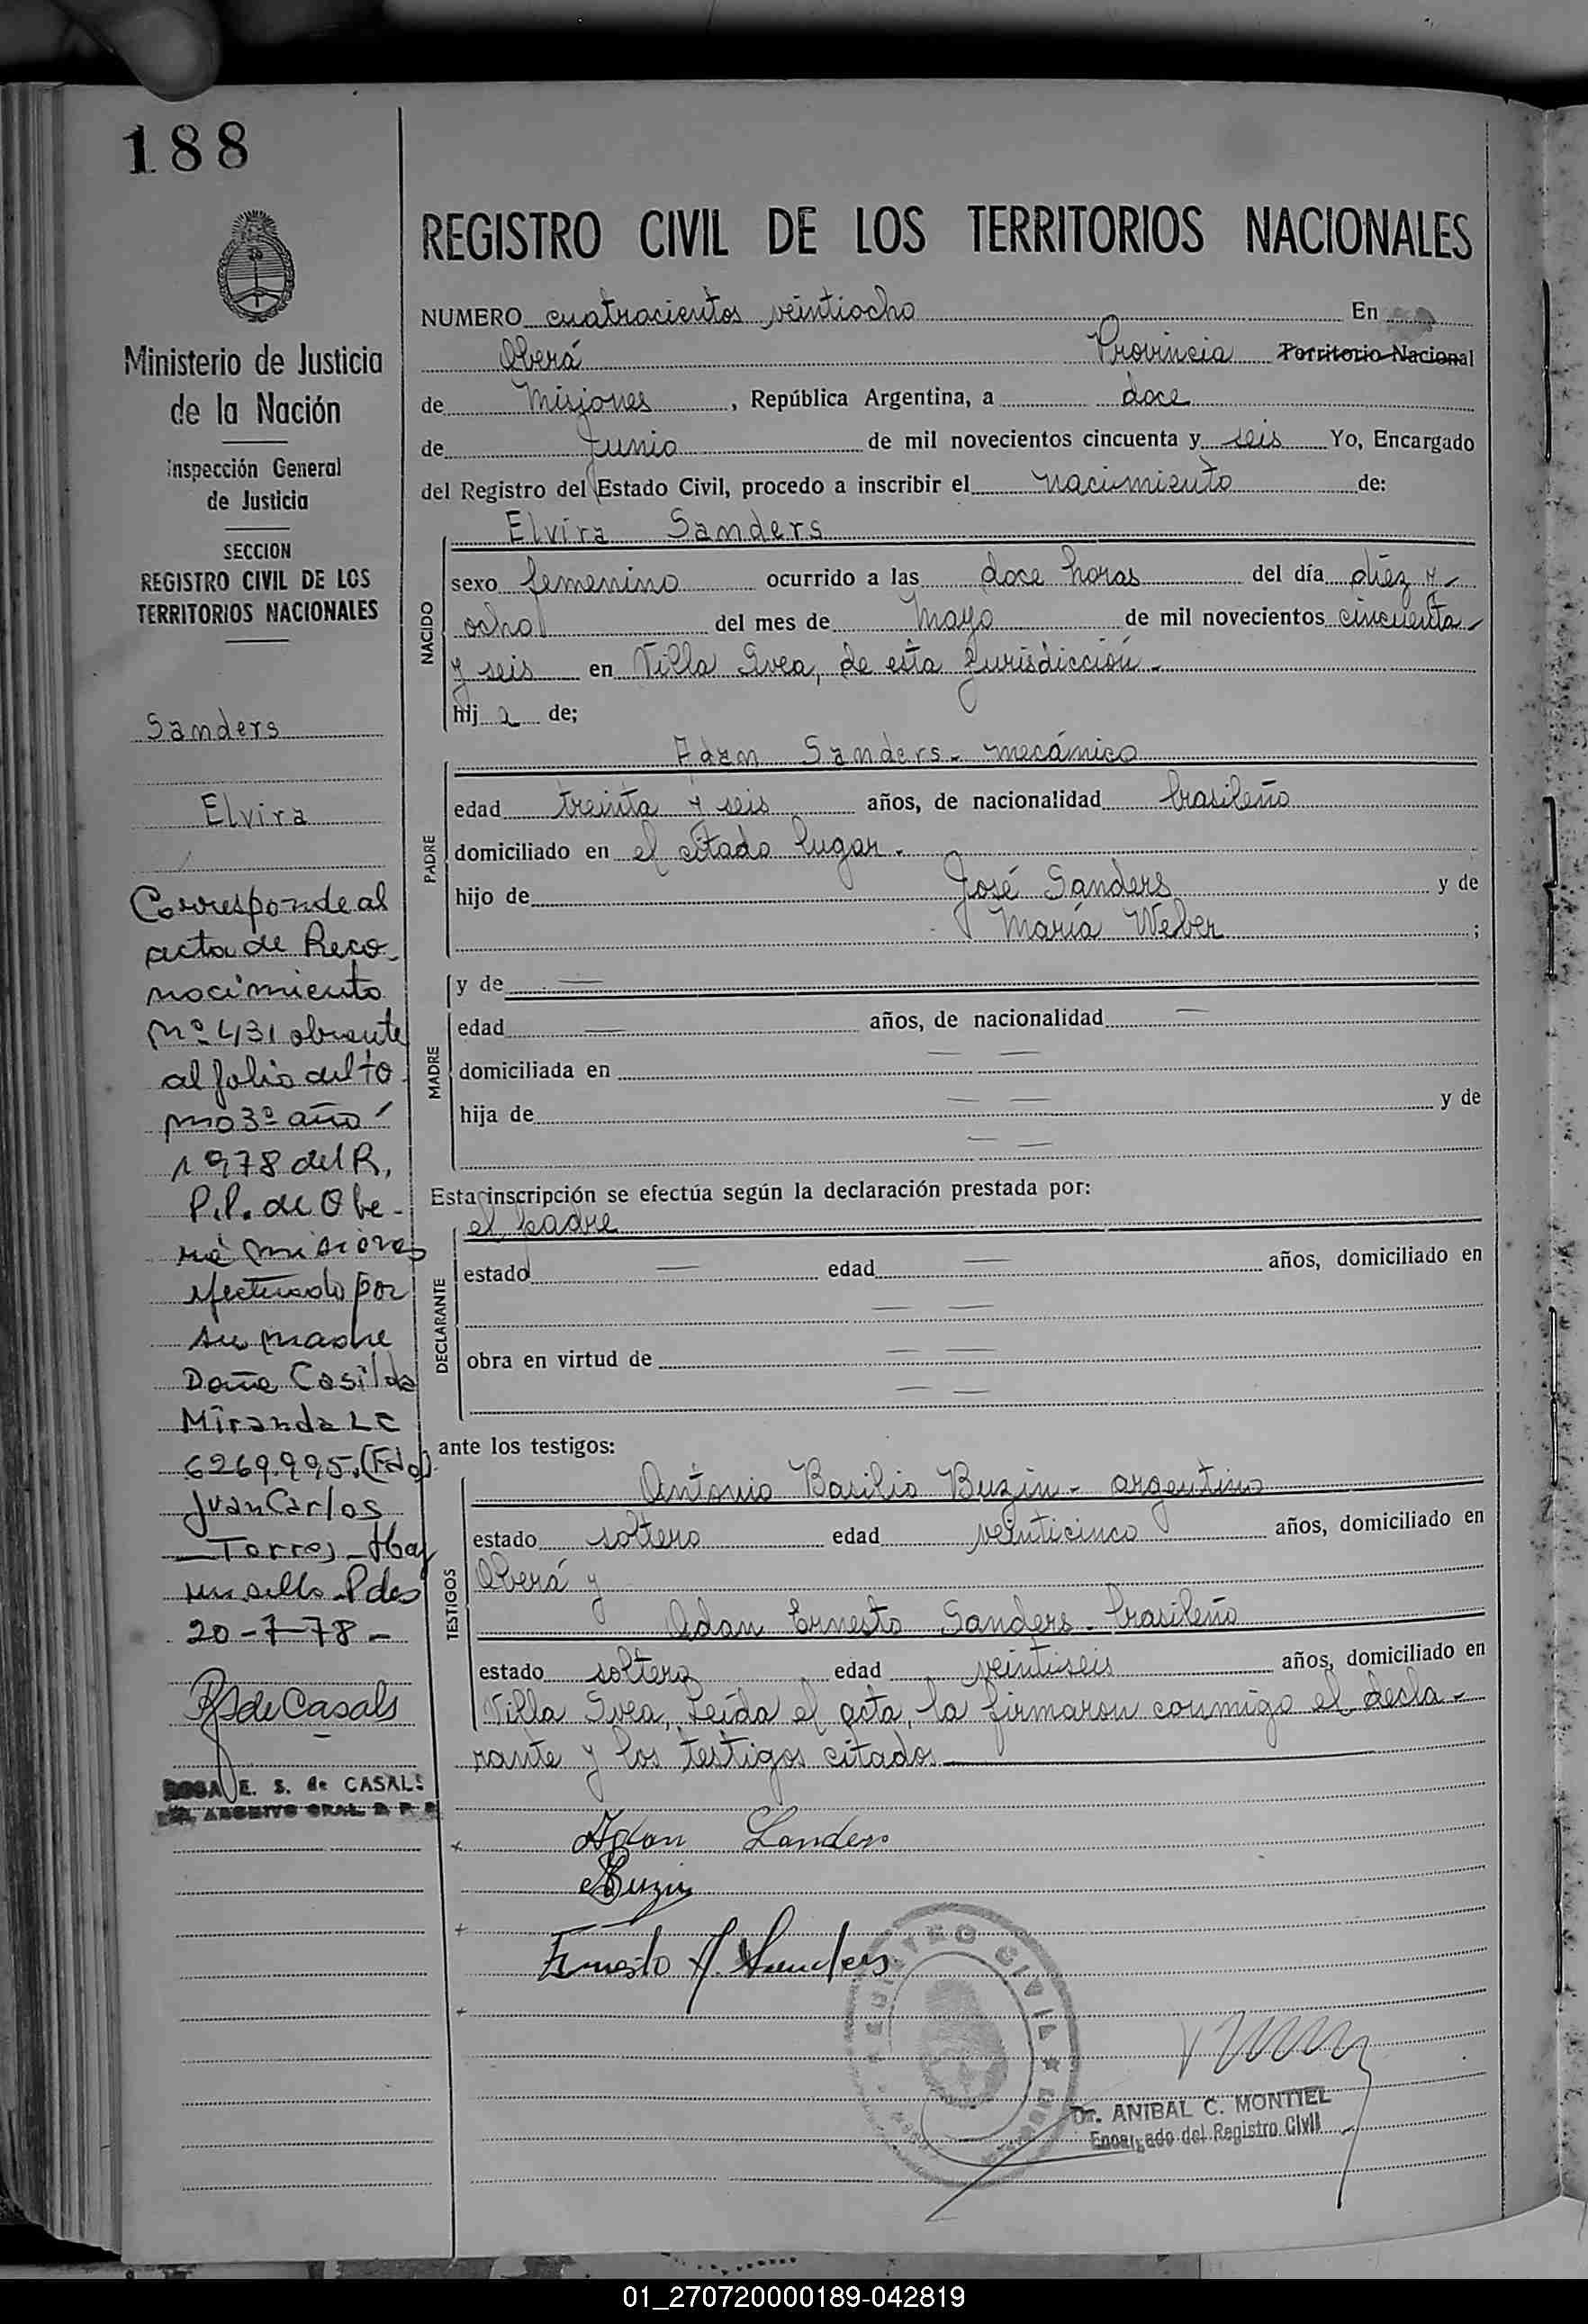 188
Ministerio de Justicia
de la Nación
Inspección General
de Justicia
SECCION
REGISTRO CIVIL DE LOS
TERRITORIOS NACIONALES
Sanders
Elvira
Corresponde al
acta de Reco-
nocimiento
Nº 431 obrante
al folio del to
mo 3º año
1978 del R.
P.P. de Obe-
rá Misiones
efectuado por
su madre
Doña Casilda
Miranda LC
6269.995.(Fdo)
Juan Carlos
Torres - Hay
un sello - Pdas
20-7-78-
RSdeCasals
ROSA E. S. de CASALS
ARCHIVO GRAL. D. P. P.
REGISTRO CIVIL DE LOS TERRITORIOS NACIONALES
NUMERO cuatrocientos veintiocho En
Oberá Provincia Territorio Nacional
de Misiones, República Argentina, a doce
de Junio de mil novecientos cincuenta y seis Yo, Encargado
del Registro del Estado Civil, procedo a inscribir el nacimiento de:
NACIDO
Elvira Sanders
sexo femenino ocurrido a las doce horas del día diéz y-
ocho del mes de Mayo de mil novecientos cincuenta-
y seis en Villa Svea, de esta jurisdicción-
hij a de;
PADRE
Adan Sanders - mecánico
edad treinta y seis años, de nacionalidad brasileño
domiciliado en el citado lugar-
hijo de José Sanders y de
María Weber ;
MADRE
y de —
edad — años, de nacionalidad —
domiciliada en — —
hija de — — y de
— —
Esta inscripción se efectúa según la declaración prestada por:
DECLARANTE
el padre
estado — edad — años, domiciliado en
— —
obra en virtud de — —
— —
ante los testigos:
TESTIGOS
Antonio Basilio Buzin - argentino
estado soltero edad veinticinco años, domiciliado en
Oberá y
Adan Ernesto Sanders - brasileño
estado soltero edad veintiseis años, domiciliado en
Villa Svea, Leída el acta, la firmaron conmigo el decla-
rante y los testigos citados
Adan Sanders
Buzin
Ernesto A. Sanders
REGISTRO CIVIL
Dr. ANIBAL C. MONTIEL
Encargado del Registro Civil
01_270720000189-042819